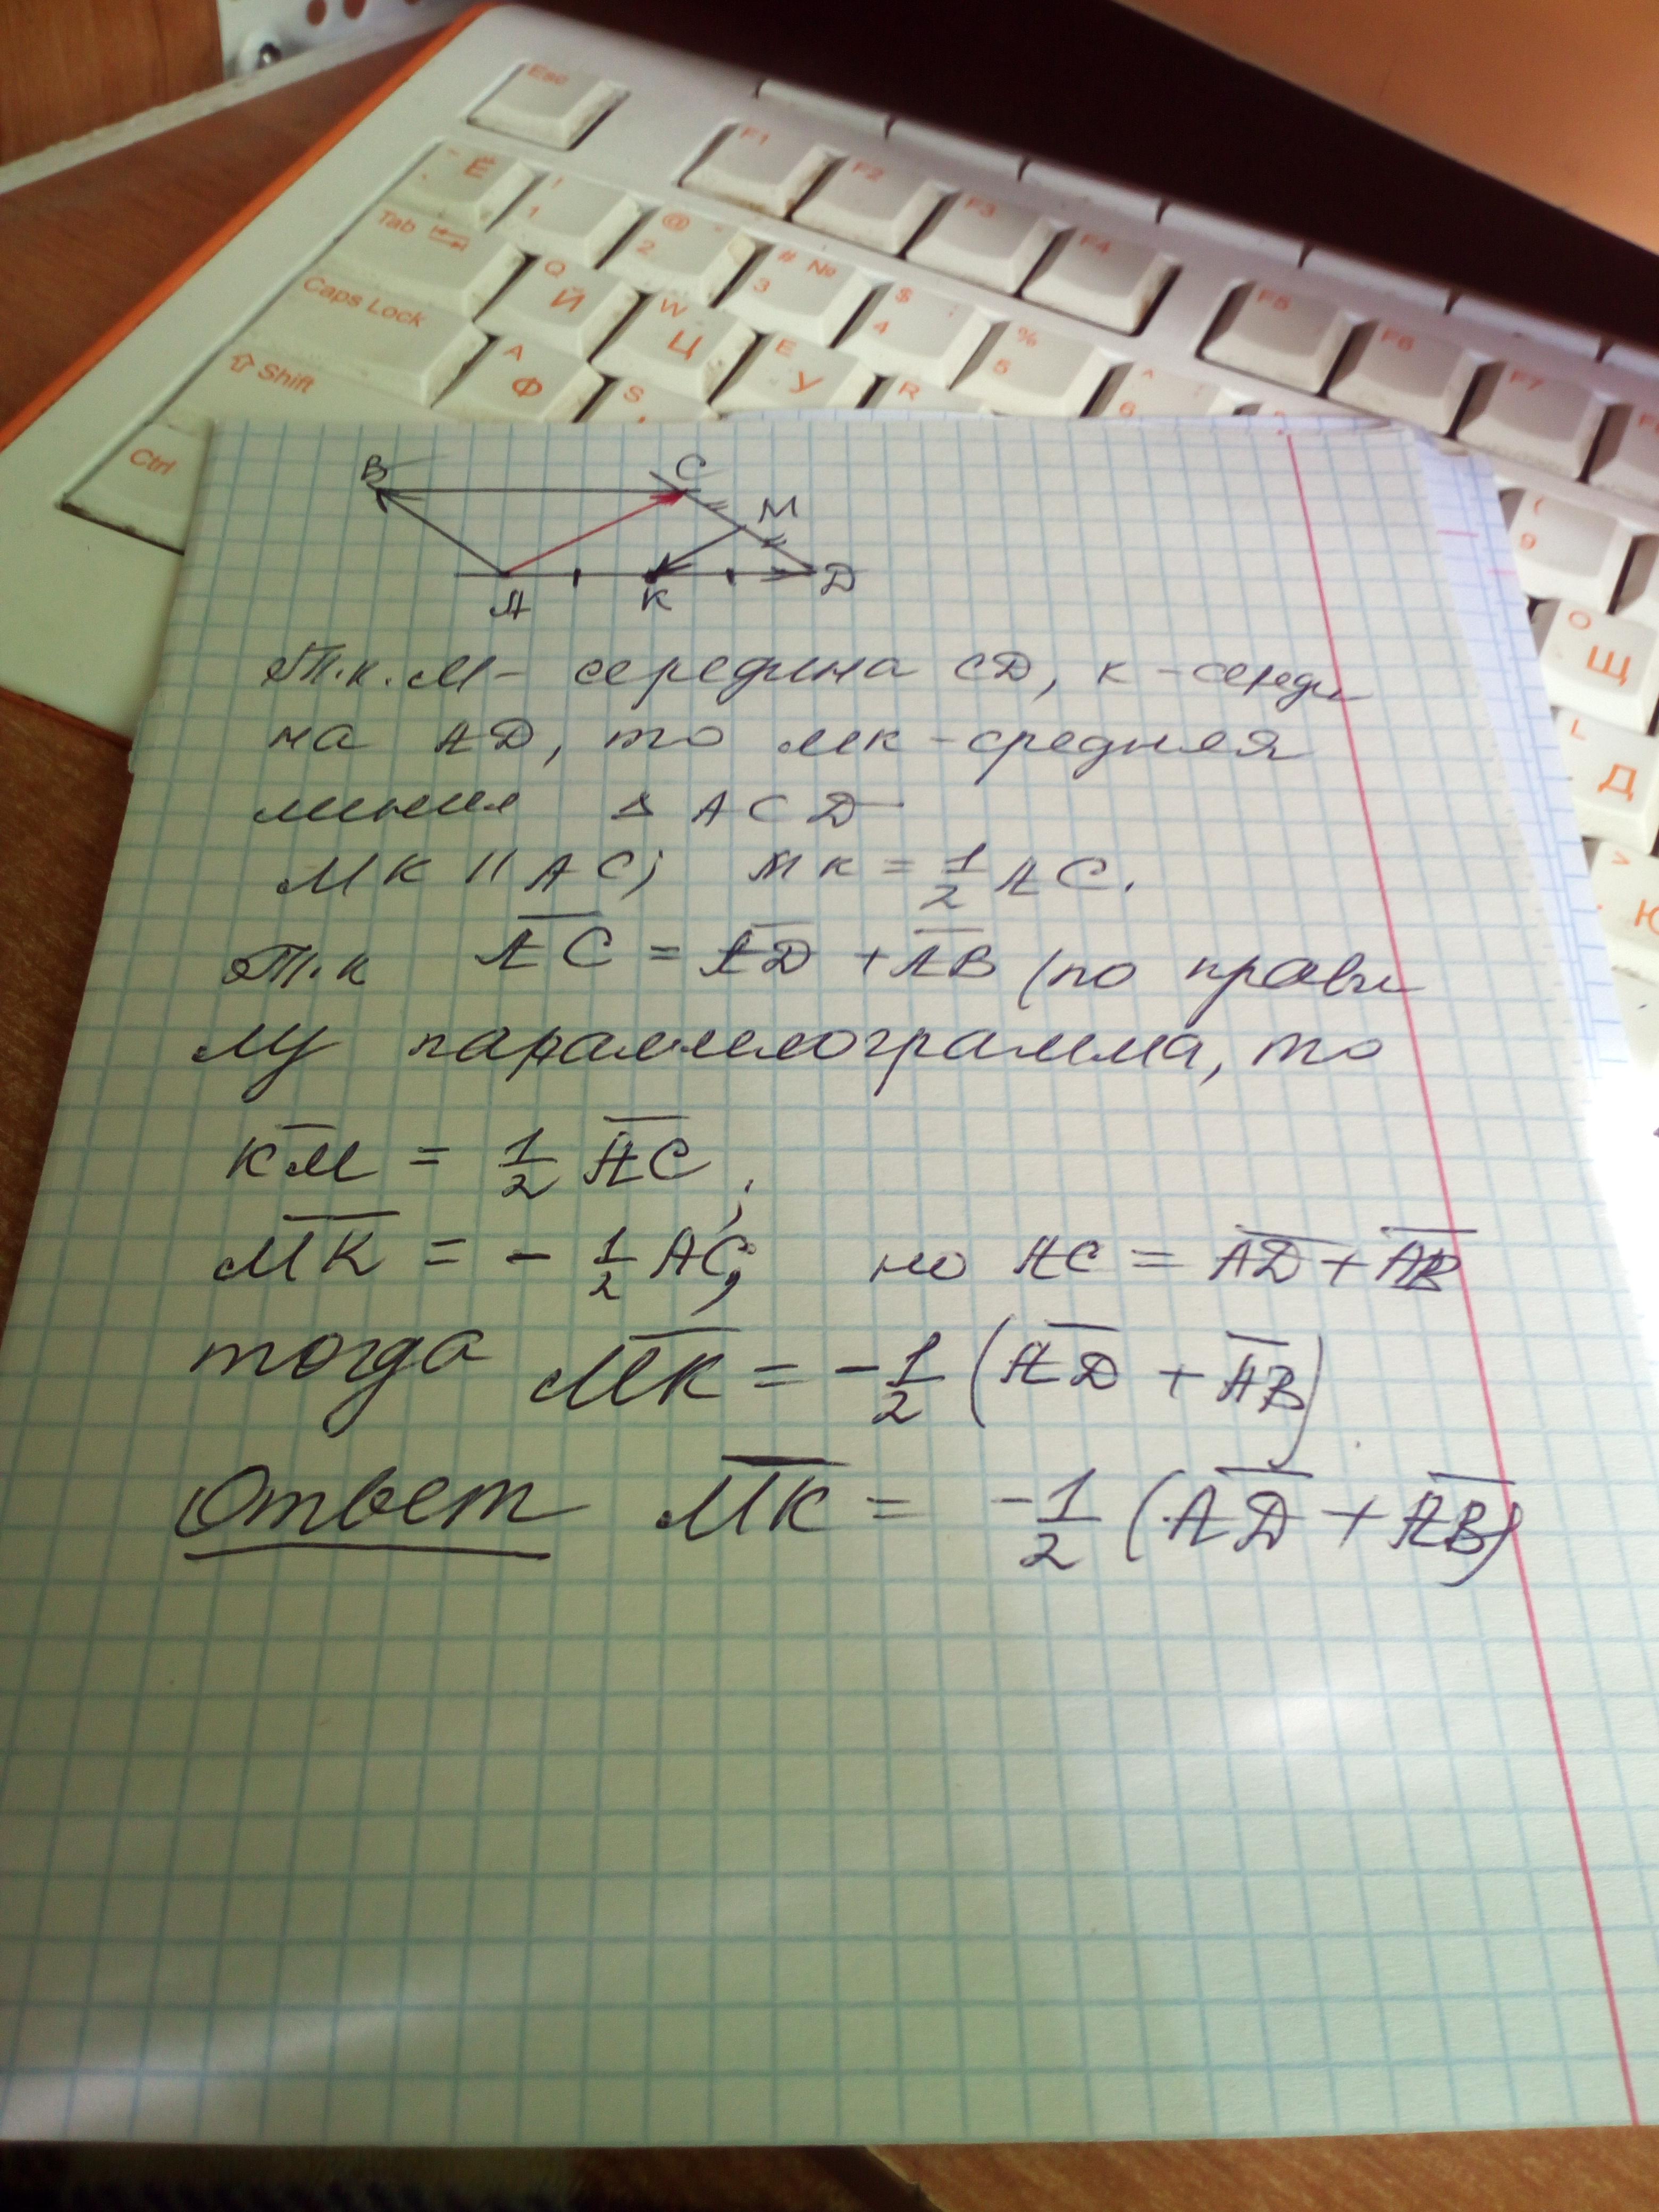 Esc
F1
F2
F3
F4
F5
F6
F7
~ Ё
! 1
@ " 2
# № 3
$ ; 4
% 5
^ : 6
( 9
Tab
Q Й
W Ц
E У
R
O Щ
Caps Lock
A Ф
S
L Д
Shift
Ctrl
> Ю
B C
M
A K D
Т.к. M - середина CD, K - середи
на AD, то MK - средняя
линия Δ ACD
MK || AC; MK = 1/2 AC.
Т.к \overline{AC} = \overline{AD} + \overline{AB} (по прави
лу параллелограмма, то
\overline{KM} = 1/2 \overline{AC},
\overline{MK} = - 1/2 AC, но AC = \overline{AD} + \overline{AB}
тогда \overline{MK} = - 1/2 (\overline{AD} + \overline{AB})
Ответ \overline{MK} = - 1/2 (\overline{AD} + \overline{AB})